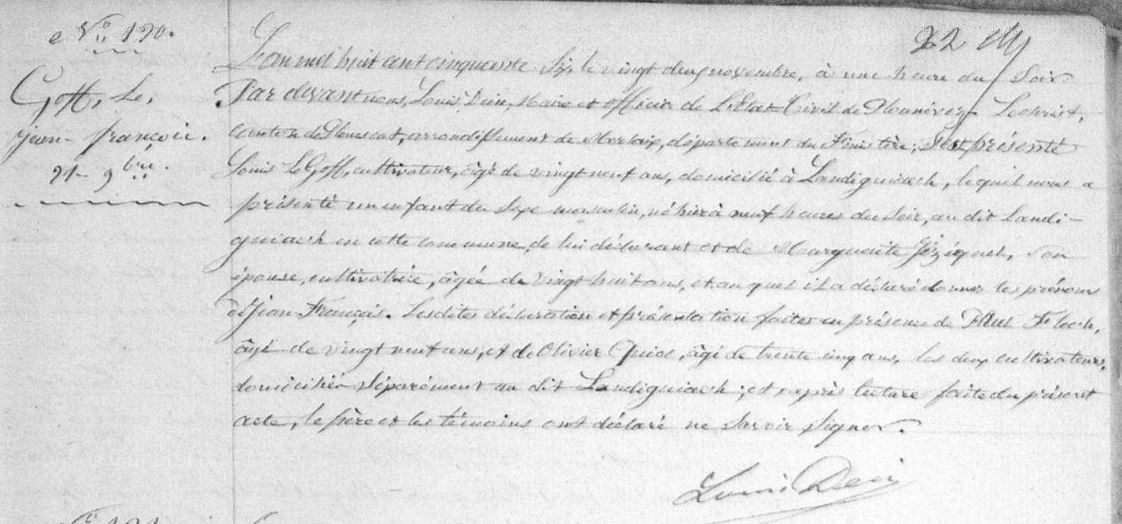 N° 190.
22
Goff, Le,
jean-françois.
21 - 9bre.
L'an mil huit cent cinquante Six, le vingt deux novembre, à une heure du Soir
Par devant nous, Louis Déin, Maire et officier de L'Etat-Civil de Plounévez-Lochrist,
Canton de Plouescat, arrondissement de Morlaix, département du Finistère, S'est présenté
Louis Le Goff, cultivateur, âgé de vingt neuf ans, domicilié à Landiguiach, lequel nous a
présenté un enfant du Sexe masculin, né hier à neuf heures du Soir, au dit Landi-
guiach en cette commune, de lui déclarant et de Marguerite Jézéquel, Son
épouse, cultivatrice, âgée de vingt huit ans, et auquel il a déclaré donner les prénoms
de Jean François. Lesdites déclaration et présentation faites en présence de Paul Floch,
âgé de vingt neuf ans, et de Olivier âgé de trente cinq ans, les deux cultivateurs,
domiciliés Séparément au dit Landiguiach; et après lecture faite du présent
acte, le père et les témoins ont déclaré ne Savoir Signer.
Louis Déin